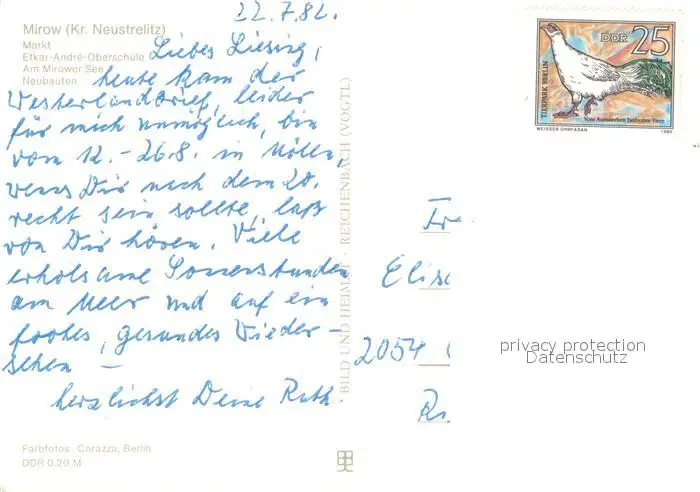 22.7.82.
Mirow (Kr. Neustrelitz)
Markt
Etkar-André-Oberschule
Am Mirower See
Neubauten
Liebes Liesing,
heute kam der
Westerlandbrief, leider
für mich unmöglich, bin
vom 12. - 26.8. in Mölln,
wenn Dir nach dem 20.
recht sein sollte, laß
von Dir hören. Viele
erholsame Sonnenstunden
am Meer und auf ein
frohes, gesundes Wieder-
sehen -
herzlichst Deine Ruth.
Farbfotos: Corazza, Berlin
DDR 0,20 M
BILD UND HEIMAT · REICHENBACH (VOGTL)
DDR 25
TIERPARK BERLIN
Vom Aussterben bedrohte Tiere
WEISSER OHRFASAN 1980
Fr
Elis
2054
privacy protection
Datenschutz